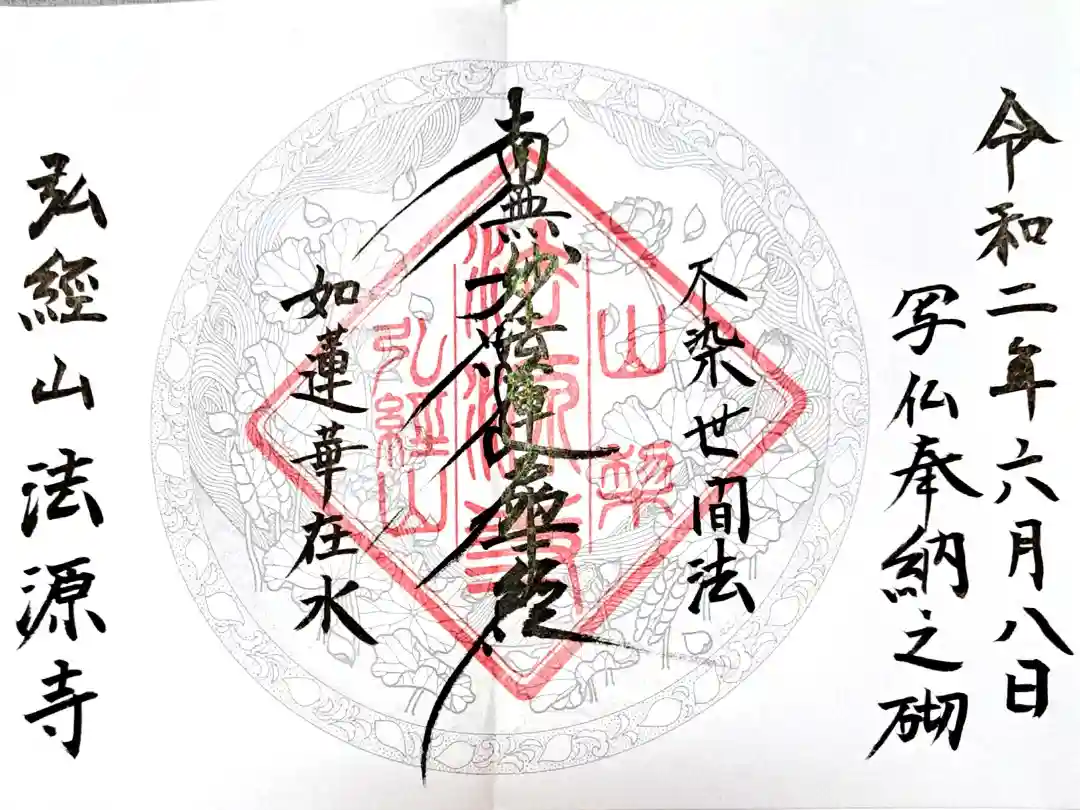 令和二年六月八日
写仏奉納之砌
不染世間法
南無妙法蓮華経
如蓮華在水
弘經山法源寺
山梨
法源寺
弘経山